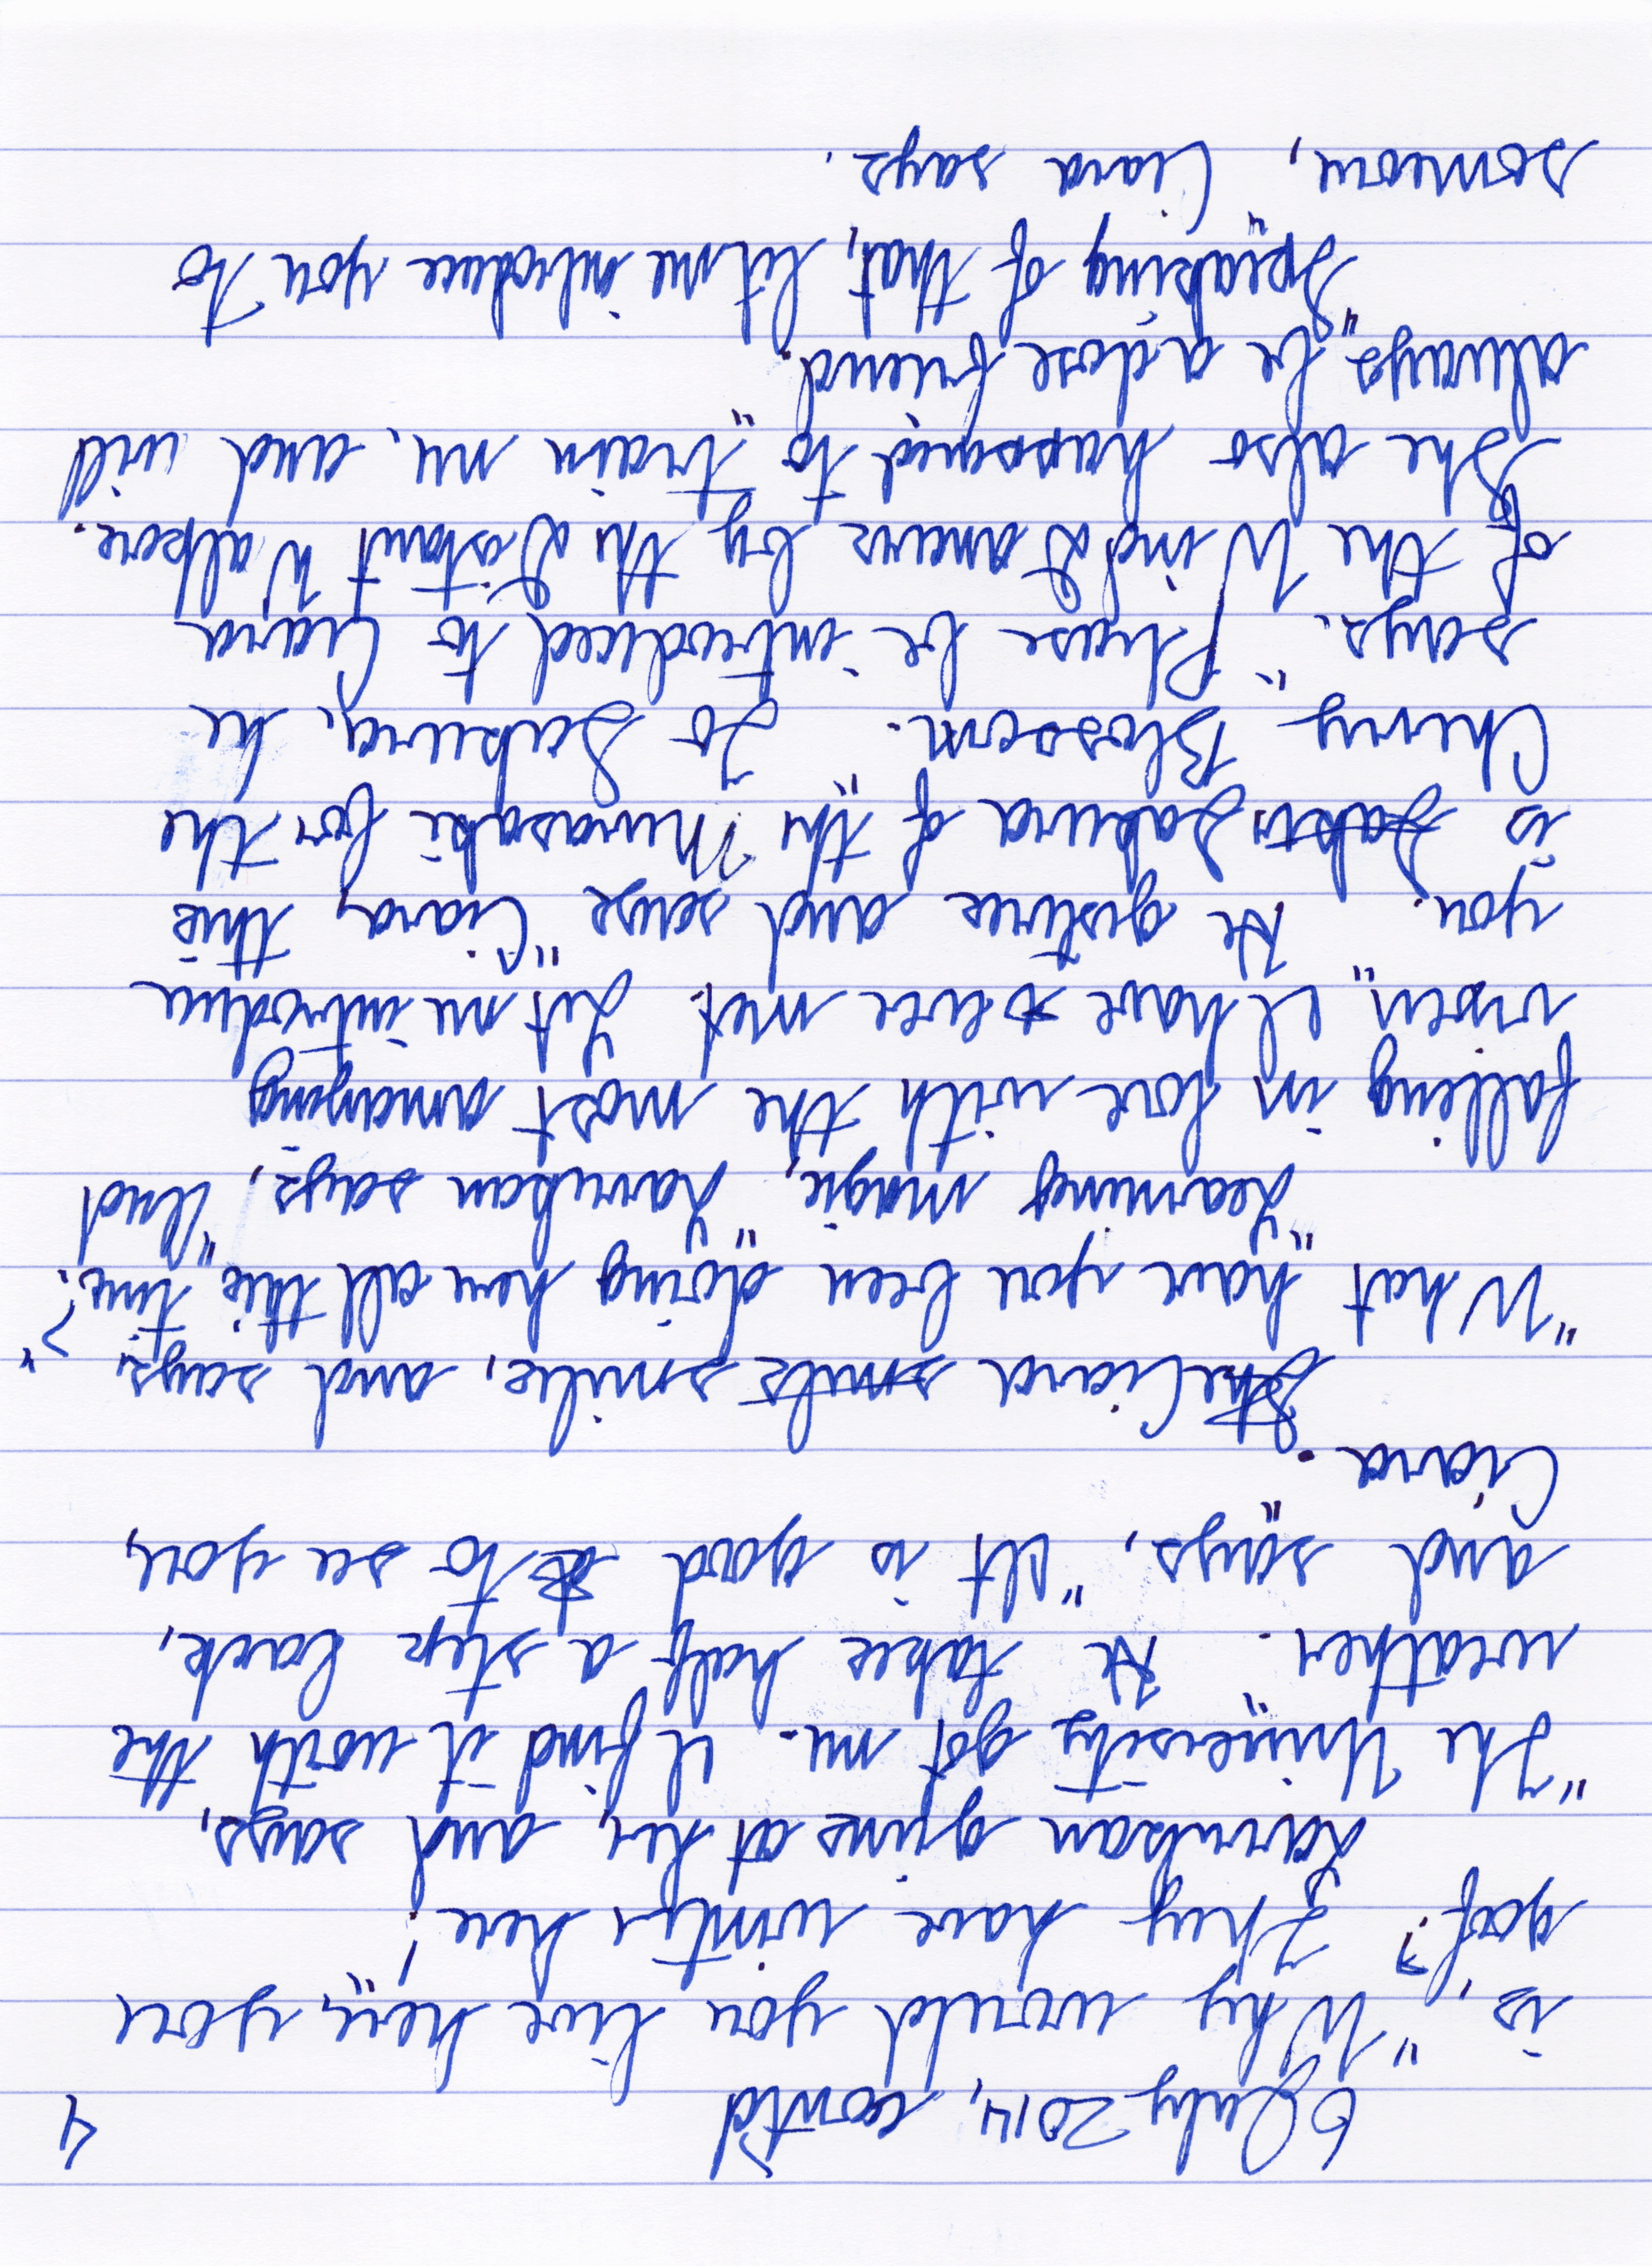 6 July 2014, cont'd 4
is, "Why would you live here, you
goof? They have winter here!"
Larrikan grins at her, and says,
"The University got me. I find it worth the
weather." He takes half a step back,
and says, "It is good to see you,
Ciara."
She Ciara smils smiles, and says,
"What have you been doing here all this time?"
"Learning magic," Larrikan says, "And
falling in love with the most amazing
vixen I have ever met. Let me introduce
you." He gestures and says "Ciara, this
is Sakur Sakura of the Murasaki for the
Cherry Blossom." To Sakura, he
says. "Please be introduced to Ciara
of the Wind Dancers by the Distant Walkers.
She also happened to train me, and will
always be a close friend."
"Speaking of that, let me introduce you to
someone," Ciara says.